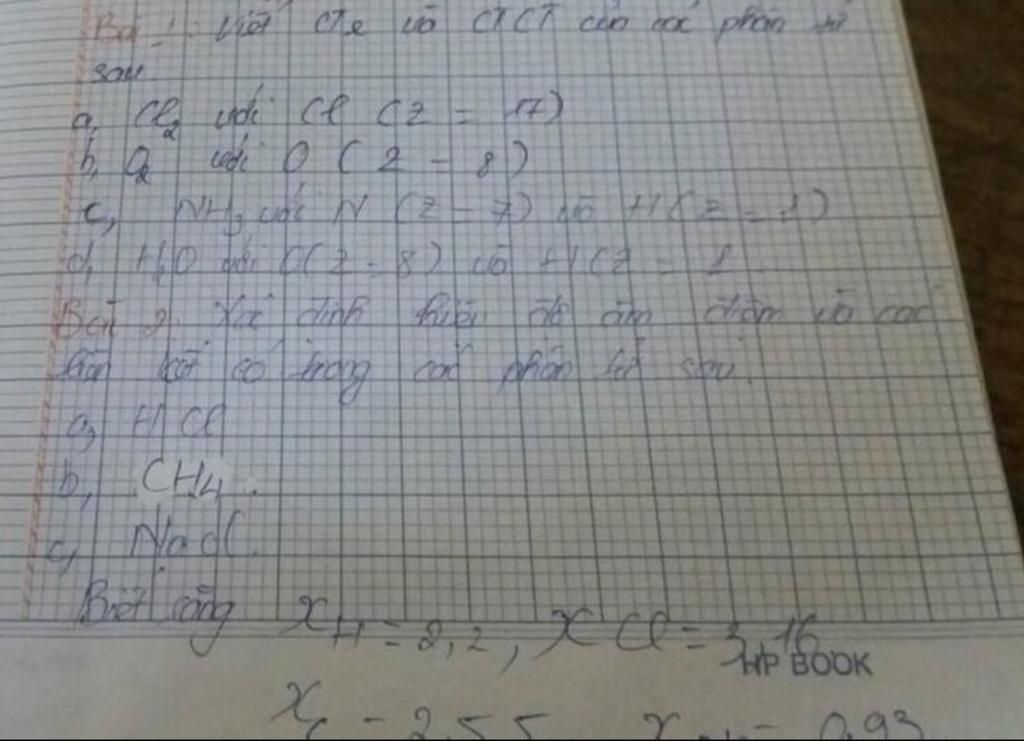 Bài 1: Viết CTe và CTCT của các phân tử
sau
a, Cl2 với Cl (Z = 17)
b, O2 với O (Z = 8)
c, NH3 với N (Z = 7) và H (Z = 1)
d, H2O với O (Z = 8) và H (Z = 1
Bài 2: Xác định hiệu độ âm điện và các
liên kết có trong các phân tử sau:
a, HCl
b, CH4.
c, NaCl.
Biết rằng XH = 2,2, XCl = 3,16
HP BOOK
XC = 2,55 X = 0,93